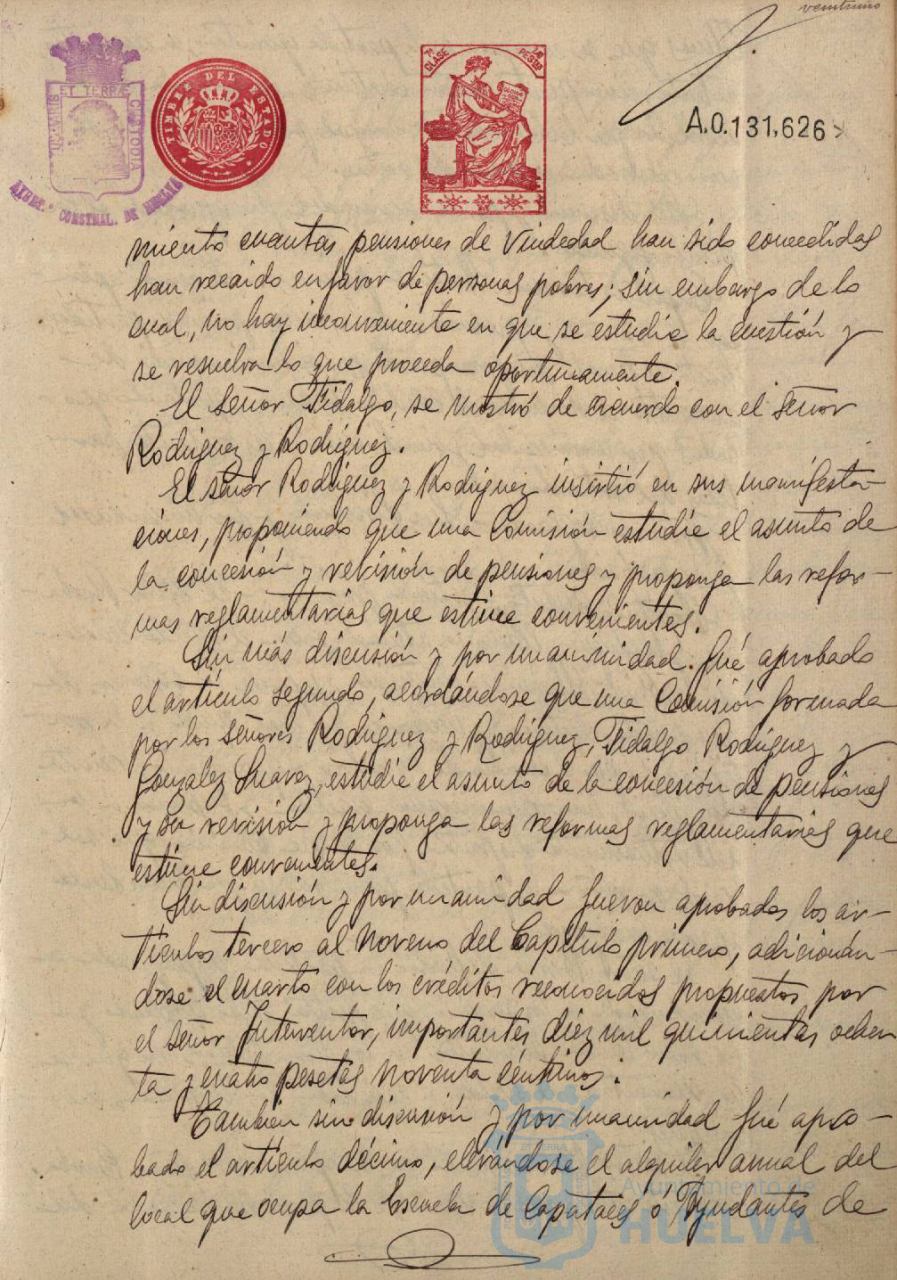 veintiuno
PORTUS MARIS ET TERRÆ CUSTODIA
AYUNT.º CONSTNAL. DE HUELVA
TIMBRE DEL ESTADO
7ª CLASE
PESETA
A.0.131,626
miento cuantas pensiones de viudedad han sido concedidas
han recaido en favor de personas pobres; sin embargo de lo
cual, no hay inconveniente en que se estudie la cuestión y
se resuelva lo que proceda oportunamente.
El Señor Fidalgo, se mostró de acuerdo con el Señor
Rodriguez y Rodriguez.
El señor Rodriguez y Rodriguez insistió en sus manifesta-
ciones, proponiendo que una Comisión estudie el asunto de
la concesión y revisión de pensiones y proponga las refor-
mas reglamentarias que estime convenientes.
Sin más discusión y por unanimidad fué aprobado
el artículo segundo, acordándose que una Comisión formada
por los Señores Rodriguez y Rodriguez, Fidalgo Rodriguez y
Gonzalez Suarez, estudie el asunto de la concesión de pensiones
y su revisión y proponga las reformas reglamentarias que
estime convenientes.
Sin discusión y por unanimidad fueron aprobados los ar-
tículos tercero al noveno del Capítulo primero, adicionán-
dose el cuarto con los créditos reconocidos propuestos por
el señor Interventor, importantes diez mil quinientas ochen
ta y cuatro pesetas noventa céntimos.
Tambien sin discusión y por unanimidad fué apro-
bado el artículo décimo, elevándose el alquiler anual del
local que ocupa la Escuela de Capataces ó Ayudantes de
Ayuntamiento de
HUELVA